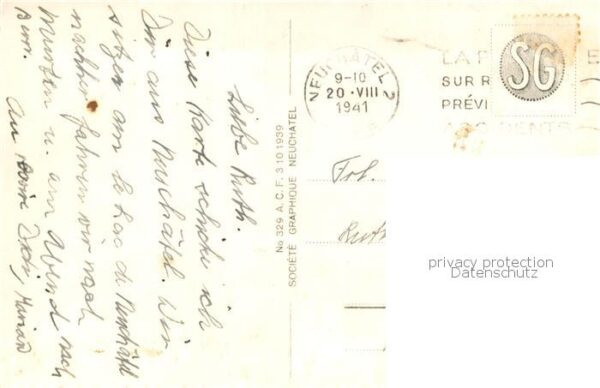 Liebe Ruth.
Diese Karte schicke ich
Dir aus Neuchâtel. Wir
sitzen am Lac de Neuchâtel
nachher fahren wir nach
Murten u. am Abend nach
Bern.
No 329 A.C.F. 3 10 1939
SOCIÉTÉ GRAPHIQUE NEUCHATEL
NEUCHÂTEL 2
9-10
20·VIII
1941
SUR
PRÉVI
ACCIDENTS
SG
Frl.
Ruth
privacy protection
Datenschutz